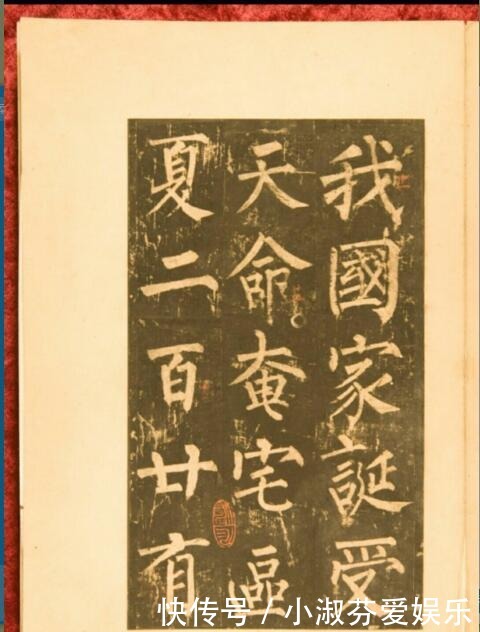 我國家誕受
天命奄宅區
夏二百廿有
快传号/小淑芬爱娱乐